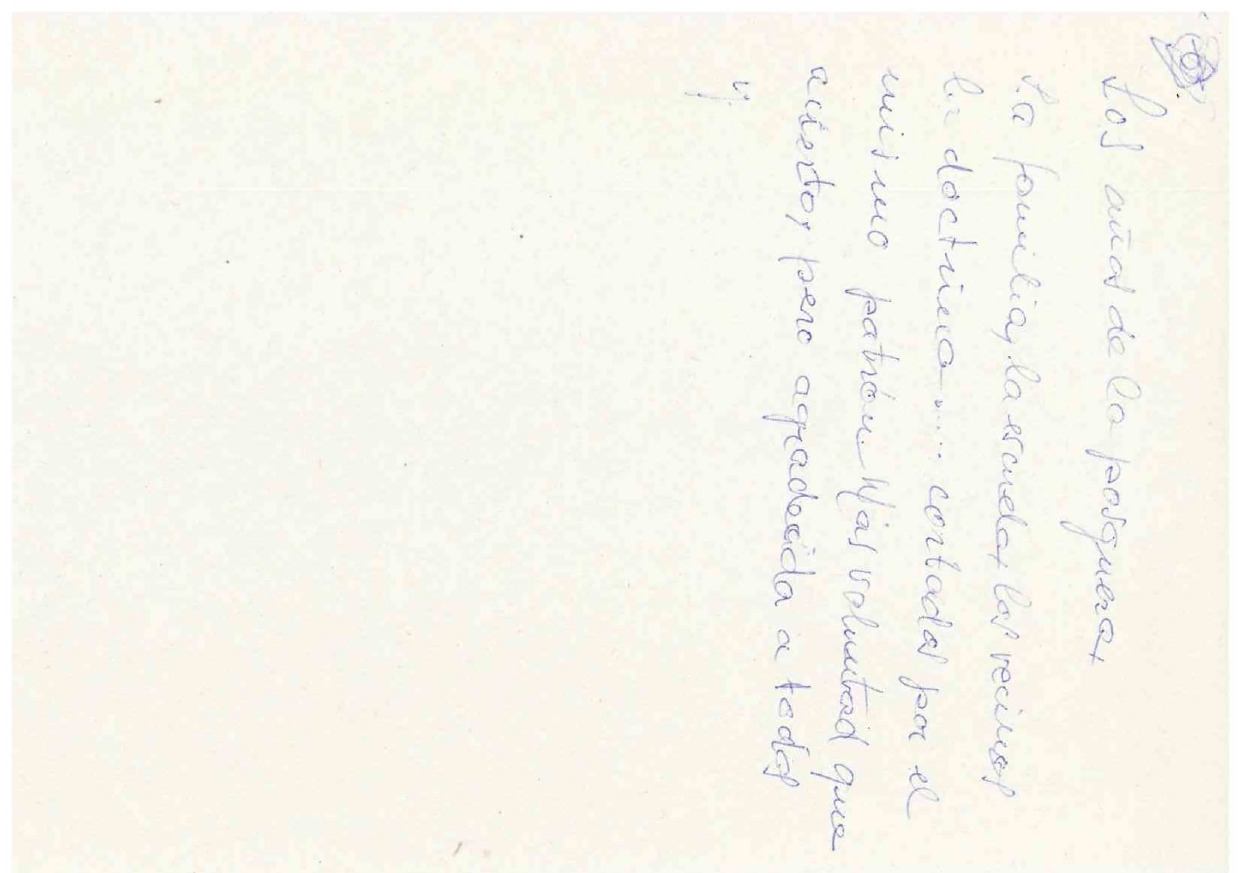 Los años de la posguerra,
La familia, la escuela, los vecinos
la doctrina.... cortados por el
mismo patrón. Más voluntad que
acierto, pero agradecida a todos
y